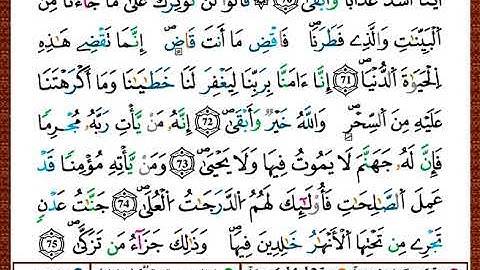 أَيُّنَا أَشَدُّ عَذَابًا وَأَبْقَىٰ ۝٧١ قَالُوا لَن نُّؤْثِرَكَ عَلَىٰ مَا جَاءَنَا مِنَ
الْبَيِّنَاتِ وَالَّذِي فَطَرَنَا فَاقْضِ مَا أَنتَ قَاضٍ إِنَّمَا نَقْضِي هَٰذِهِ
الْحَيَوٰةَ الدُّنْيَا ۝٧١ إِنَّا ءَامَنَّا بِرَبِّنَا لِيَغْفِرَ لَنَا خَطَٰيَٰنَا وَمَا أَكْرَهْتَنَا
عَلَيْهِ مِنَ السِّحْرِ وَاللَّهُ خَيْرٌ وَأَبْقَىٰ ۝٧٢ إِنَّهُ مَن يَأْتِ رَبَّهُ مُجْرِمًا
فَإِنَّ لَهُ جَهَنَّمَ لَا يَمُوتُ فِيهَا وَلَا يَحْيَىٰ ۝٧٣ وَمَن يَأْتِهِ مُؤْمِنًا قَدْ
عَمِلَ الصَّٰلِحَٰتِ فَأُوْلَٰئِكَ لَهُمُ الدَّرَجَٰتُ الْعُلَىٰ ۝٧٤ جَنَّٰتُ عَدْنٍ
تَجْرِي مِن تَحْتِهَا الْأَنْهَٰرُ خَٰلِدِينَ فِيهَا وَذَٰلِكَ جَزَاءُ مَن تَزَكَّىٰ ۝٧٥